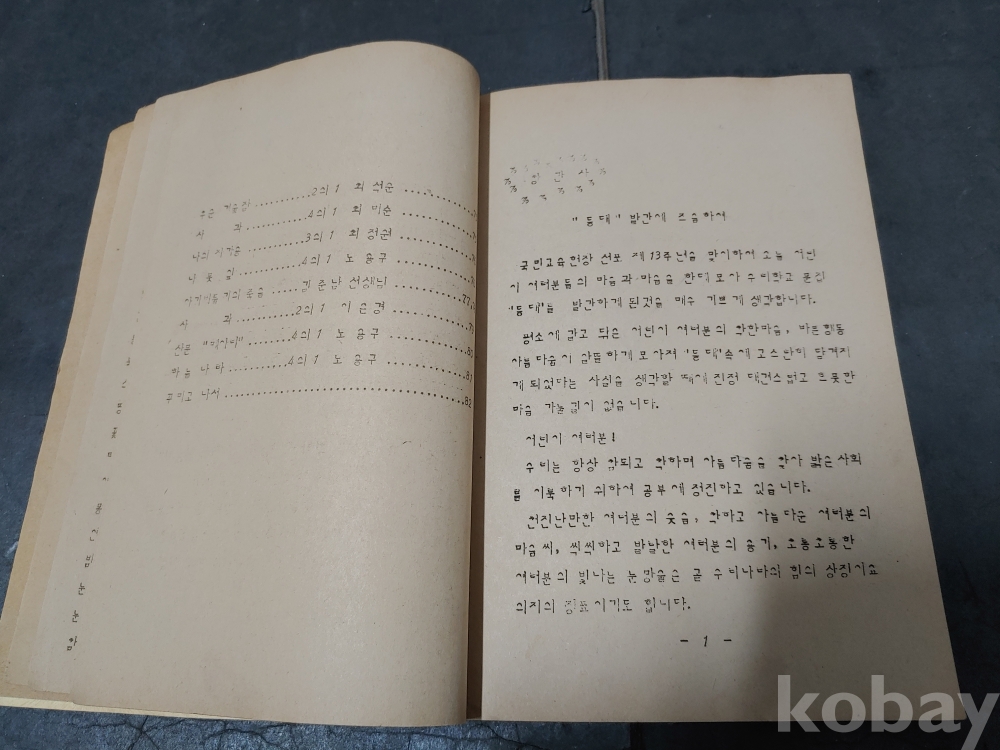 2의 1 최 석순
사 과 4의 1 최 미순
나의 저기슴 3의 1 최 정권
4의 1 노 용구
죽음 김 춘남 선생님 77
사 과 2의 1 이 은경
신문 4의 1 노 용구 80
하늘 나라 4의 1 노 용구 81
꾸미고 나서 82
격 간 사
"등대" 발간에 즈음하여
국민교육헌장 선포 제 13주년을 맞이하여 오늘 어린
이 여러분들의 마음과 마음을 한데 모아 우리학교 문집
"등대"를 발간하게 된것을 매우 기쁘게 생각합니다.
평소에 갈고 닦은 어린이 여러분의 착한마음, 바른행동
아름다움이 알뜰하게 모아져 "등대"속에 고스란히 담겨지
게 되었다는 사실을 생각할 때에 진정 대견스럽고 흐뭇한
마음 가눌길이 없습니다.
어린이 여러분!
우리는 항상 참되고 착하며 아름다움을 찾아 밝은 사회
를 이룩하기 위하여 공부에 정진하고 있습니다.
천진난만한 여러분의 웃음, 착하고 아름다운 여러분의
마음씨, 씩씩하고 발랄한 여러분의 용기, 초롱초롱한
여러분의 빛나는 눈망울은 곧 우리나라의 힘의 상징이요
의지의 징표이기도 합니다.
- 1 -
kobay